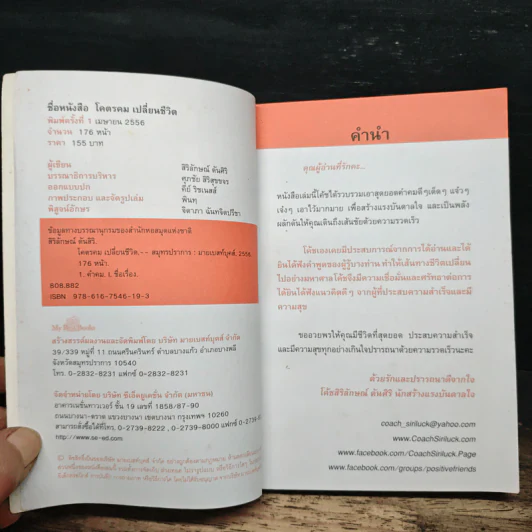 ชื่อหนังสือ โคตรคม เปลี่ยนชีวิต
พิมพ์ครั้งที่ 1 เมษายน 2556
จำนวน 176 หน้า
ราคา 155 บาท
ผู้เขียน สิริลักษณ์ ตันศิริ
บรรณาธิการบริหาร ศุภชัย สิริสุขขจร
ออกแบบปก ดีย์ ริชเนสส์
ภาพประกอบ และจัดรูปเล่ม พินทุ
พิสูจน์อักษร จิดาภา ฉันทจิตปรีชา
ข้อมูลทางบรรณานุกรมของสำนักหอสมุดแห่งชาติ
สิริลักษณ์ ตันศิริ.
โคตรคม เปลี่ยนชีวิต.-- สมุทรปราการ : มายเบสท์บุ๊คส์, 2556.
176 หน้า.
1. คำคม. I. ชื่อเรื่อง.
808.882
ISBN 978-616-7546-19-3
สร้างสรรค์ผลงานและจัดพิมพ์โดย บริษัท มายเบสท์บุ๊คส์ จำกัด
39/339 หมู่ที่ 11 ถนนศรีนครินทร์ ตำบลบางแก้ว อำเภอบางพลี
จังหวัดสมุทรปราการ 10540
โทร. 0-2832-8231 แฟกซ์ 0-2832-8231
จัดจำหน่ายโดย บริษัท ซีเอ็ดยูเคชั่น จำกัด (มหาชน)
อาคารเนชั่นทาวเวอร์ ชั้น 19 เลขที่ 1858/87-90
ถนนบางนา-ตราด แขวงบางนา เขตบางนา กรุงเทพฯ 10260
สามารถสั่งซื้อได้ที่โทร. 0-2739-8222 , 0-2739-8000
http://www.se-ed.com/
คำนำ
คุณผู้อ่านที่รักคะ...
หนังสือเล่มนี้โค้ชได้รวบรวมเอาสุดยอดคำคมดีๆเด็ดๆ แจ๋วๆ
เจ๋งๆ เอาไว้มากมาย เพื่อสร้างแรงบันดาลใจ และเป็นพลัง
ผลักดันให้คุณเดินถึงเส้นชัยด้วยความรวดเร็ว
โค้ชเองเคยมีประสบการณ์จากการได้อ่านและได้
ยินได้ฟังคำพูดของผู้รู้บางท่าน ทำให้เส้นทางชีวิตเปลี่ยน
ไปอย่างมหาศาล โค้ชจึงมีความเชื่อมั่นและศรัทธาต่อการ
ได้ยินได้ฟังแนวคิดดีๆ จากผู้ที่ประสบความสำเร็จและมี
ความสุข
ขออวยพรให้คุณมีชีวิตที่สุดยอด ประสบความสำเร็จ
และมีความสุขทุกอย่างเกินใจปรารถนาด้วยความรวดเร็วนะคะ
ด้วยรักและปรารถนาดีจากใจ
โค้ชสิริลักษณ์ ตันศิริ นักสร้างแรงบันดาลใจ
coach_siriluck@yahoo.com
www.CoachSiriluck.com
www.facebook.com/CoachSiriluck.Page
www.facebook.com/groups/positivefriends